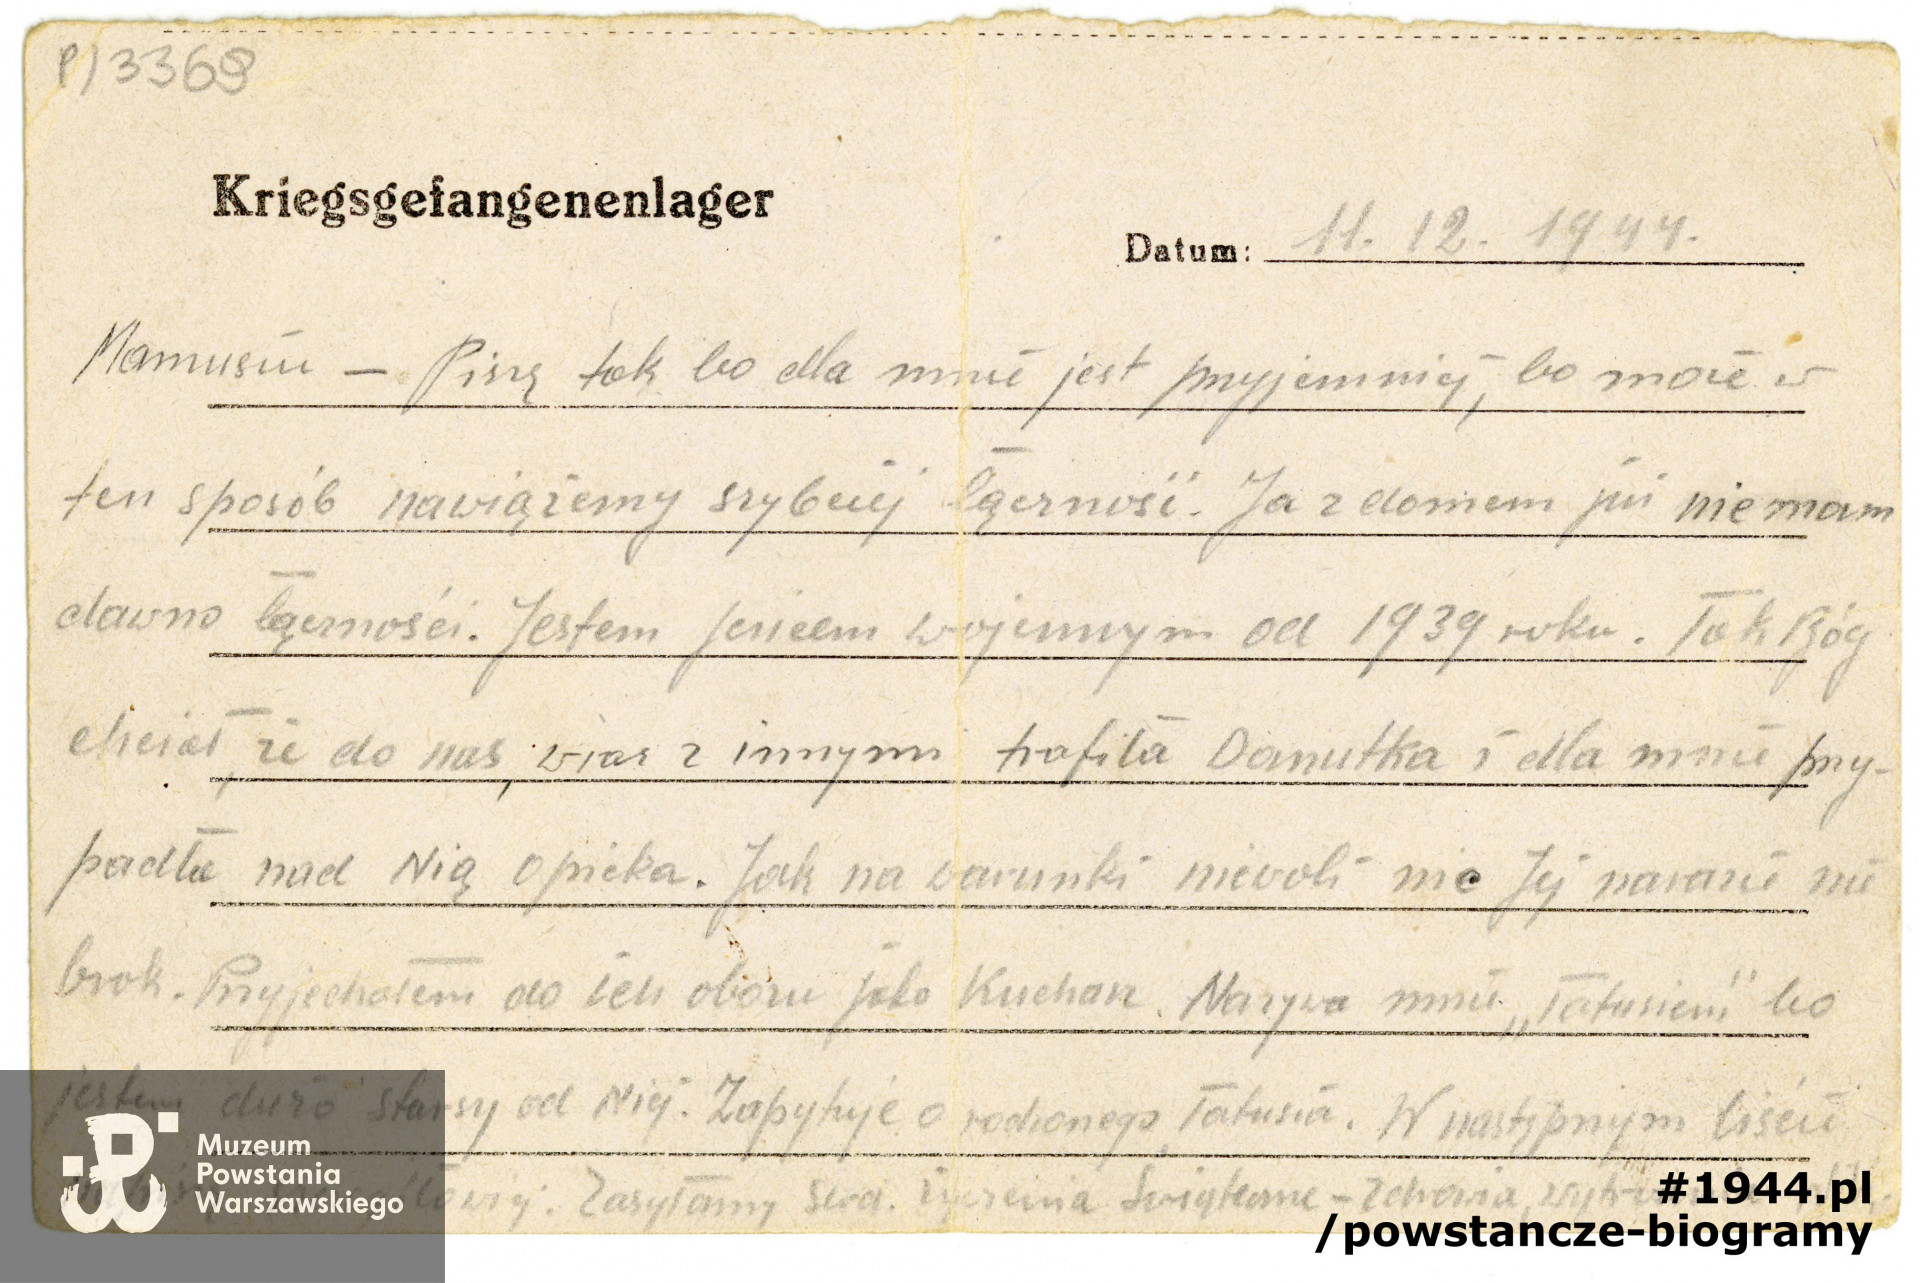 P/3368
Kriegsgefangenenlager
Datum: 11. 12. 1944.
Mamusiu — Piszę tak bo dla mnie jest przyjemniej, bo może w
ten sposób nawiążemy szybciej łączność. Ja z domem już nie mam
dawno łączności. Jestem jeńcem wojennym od 1939 roku. Tak Bóg
chciał, że do nas, wraz z innymi trafiła Danutka i dla mnie przy-
padła nad Nią opieka. Jak na warunki niewoli nic Jej narazie nie
brak. Przyjechałem do ich obozu jako Kucharz. Nazywa mnie „Tatusiem" bo
jestem dużo starszy od Niej. Zapytuje o rodzonego Tatusia. W następnym liście
Zasyłamy serd. życzenia Świąteczne – Zdrowia,
Muzeum
Powstania
Warszawskiego
#1944.pl
/powstancze-biogramy